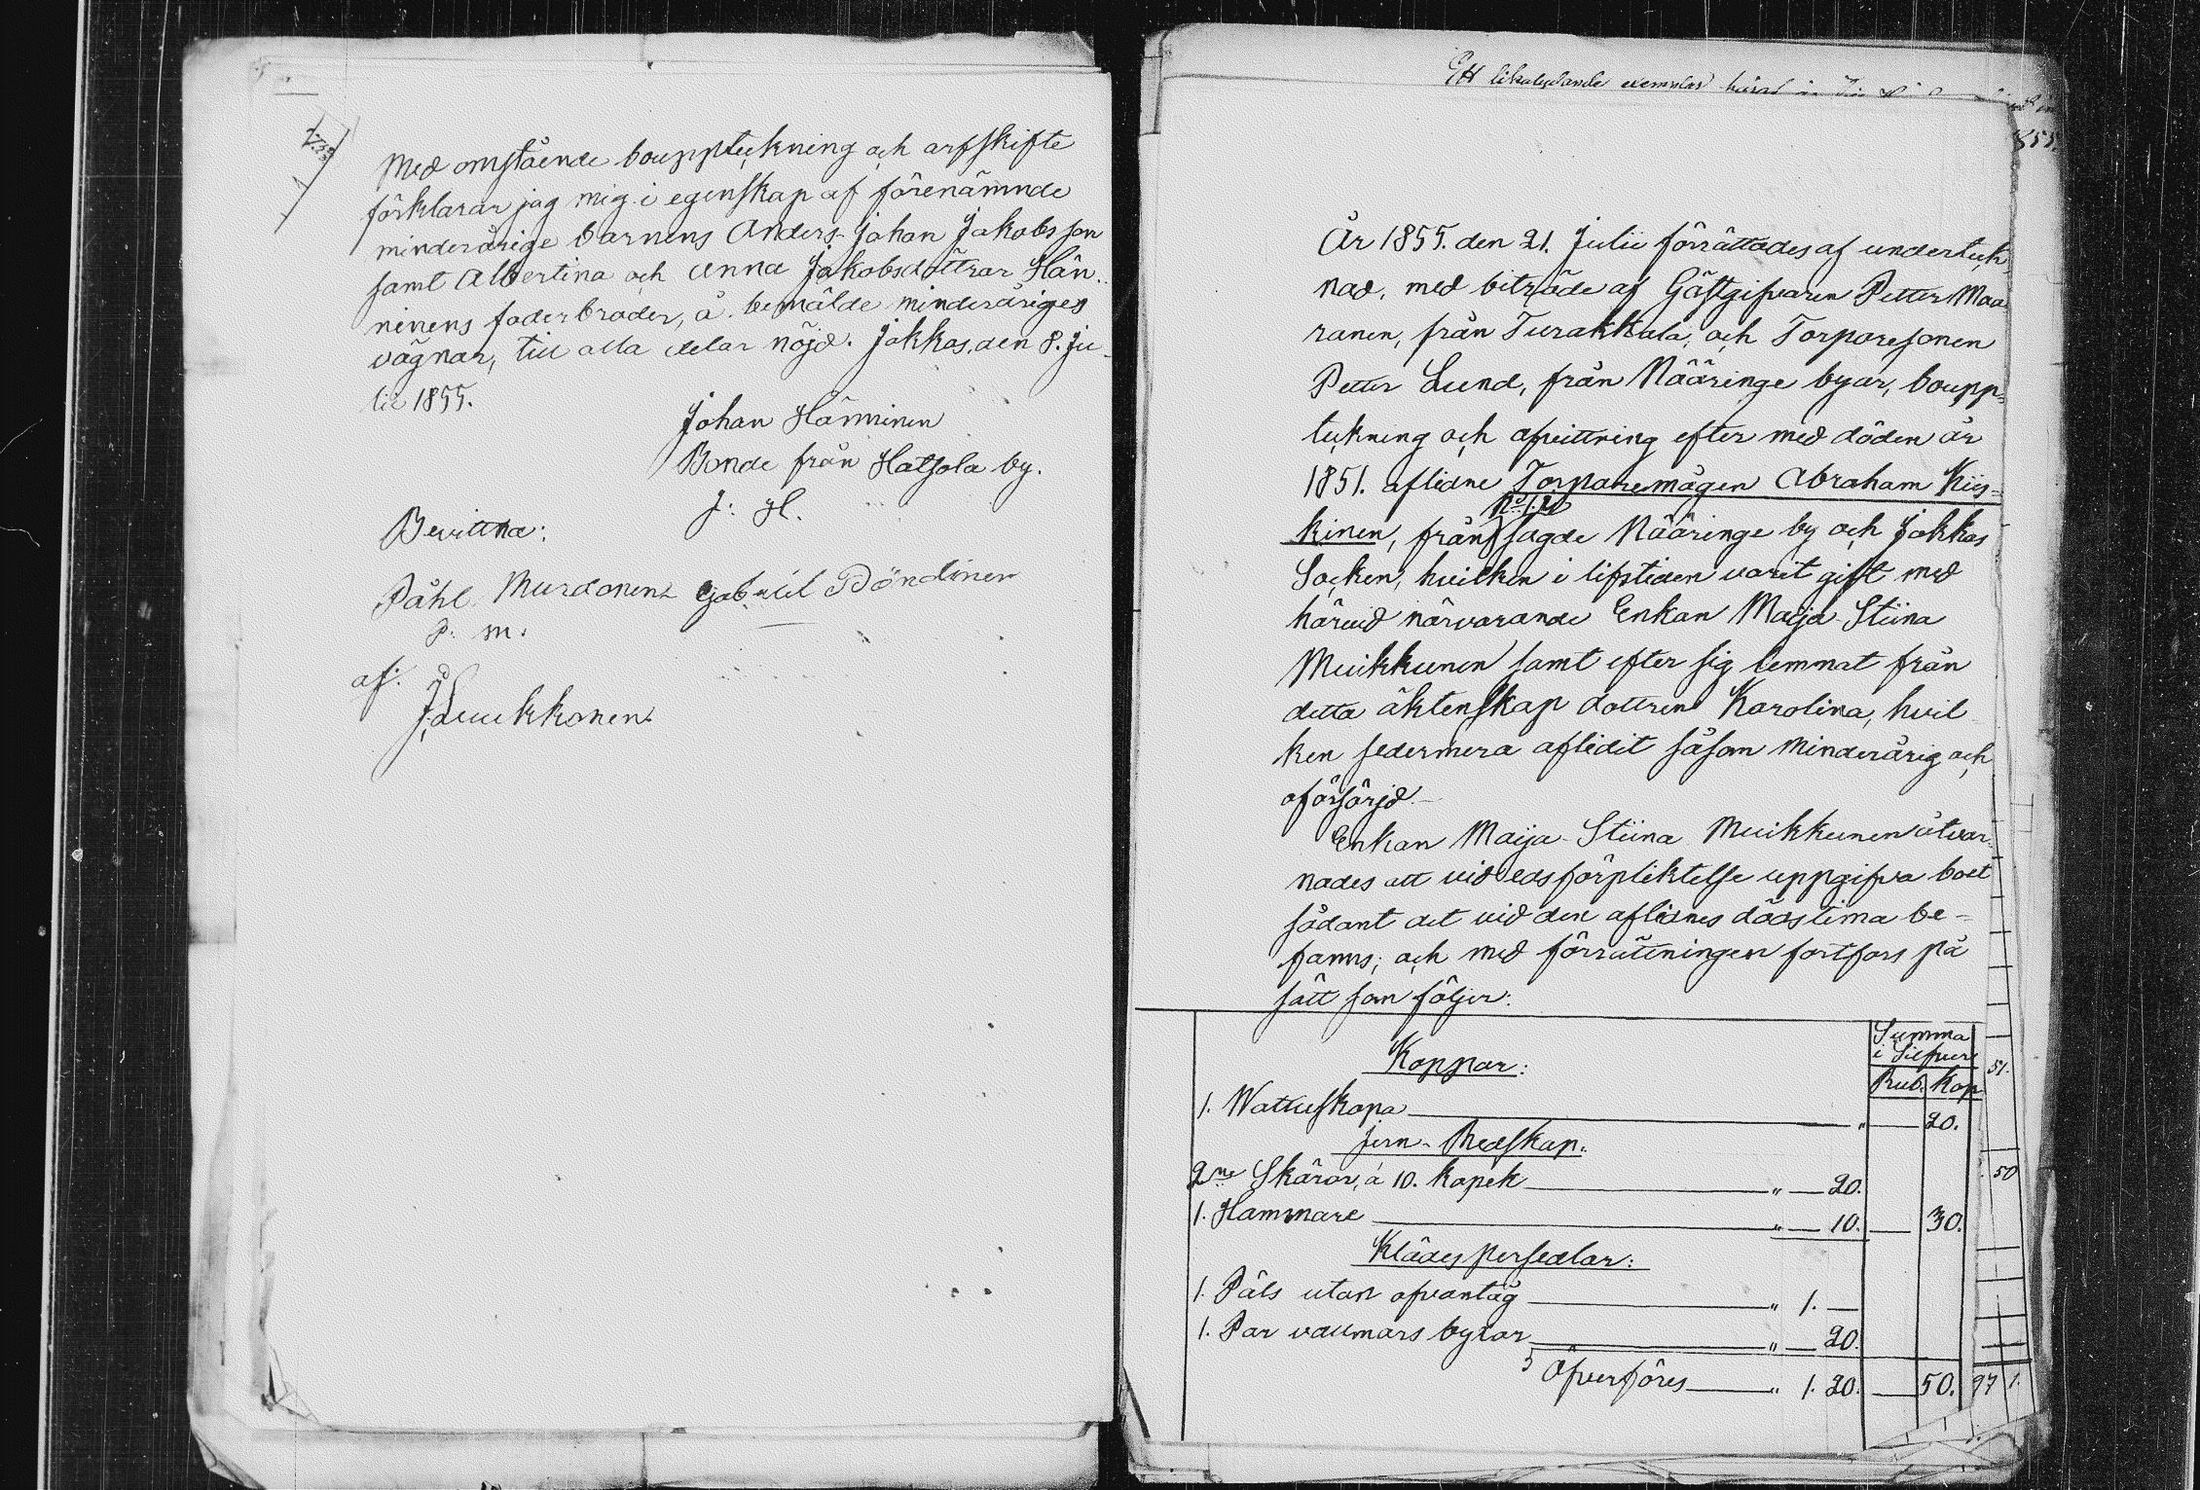 Med omstående bouppteckning och arfskifte
förklarar jag mig i egenskap af förenämnde
minderårige barnens Anders Johan Jakobsson
samt Albertina och Anna Jakobsdöttrar Hän-
ninens faderbroder, å bemälde minderåriges
vägnar, till alla delar nöjd. Jokkas, den 8. Ju-
lii 1855.
Johan Hänninen
Bonde från Hatsola by.
J: H.
Bevittna:
Påhl Murdonen Gabriel Pöndinen
P: m:
af:
J. Luukkonen.
Ett likalydande exemplar
855.
År 1855. den 21. Julii förrättades af underteck-
nad, med biträde af Gästgifvaren Petter Maa-
ranen, från Turakkala, och Torparesonen
Petter Lund, från Nääringe byar, boupp-
teckning och afvittring efter med döden år
1851. aflidne Torparemågen Abraham Kiis-
kinen, från sagde Nääringe by och Jokkas
Socken, hvilken i lifstiden varit gift med
härvid närvarande Enkan Maija Stiina
Muikkunen samt efter sig lemnat från
detta äktenskap dottren Karolina, hvil-
ken sedermera aflidit såsom minderårig och
oförsörjd.
Enkan Maija Stiina Muikkunen åtvar-
nades att vid edsförpliktelse uppgifva boet
sådant det vid den aflidnes dödstima be-
fanns; och med förrättningen fortfors på
sätt som följer:
Summa
i Silfver
Koppar: 51.
Rub. Kop.
1. Wattuskopa " — 20.
Jern-Redskap.
2ne Skäror, á 10. kopek " — 20. 50
1. Hammare " — 10. — 30.
Klädespersedlar:
1. Päls utan ofvantåg " 1. —
1. Par vallmars byxor " — 20.
Öfverföres " 1. 20. — 50. 97 1.